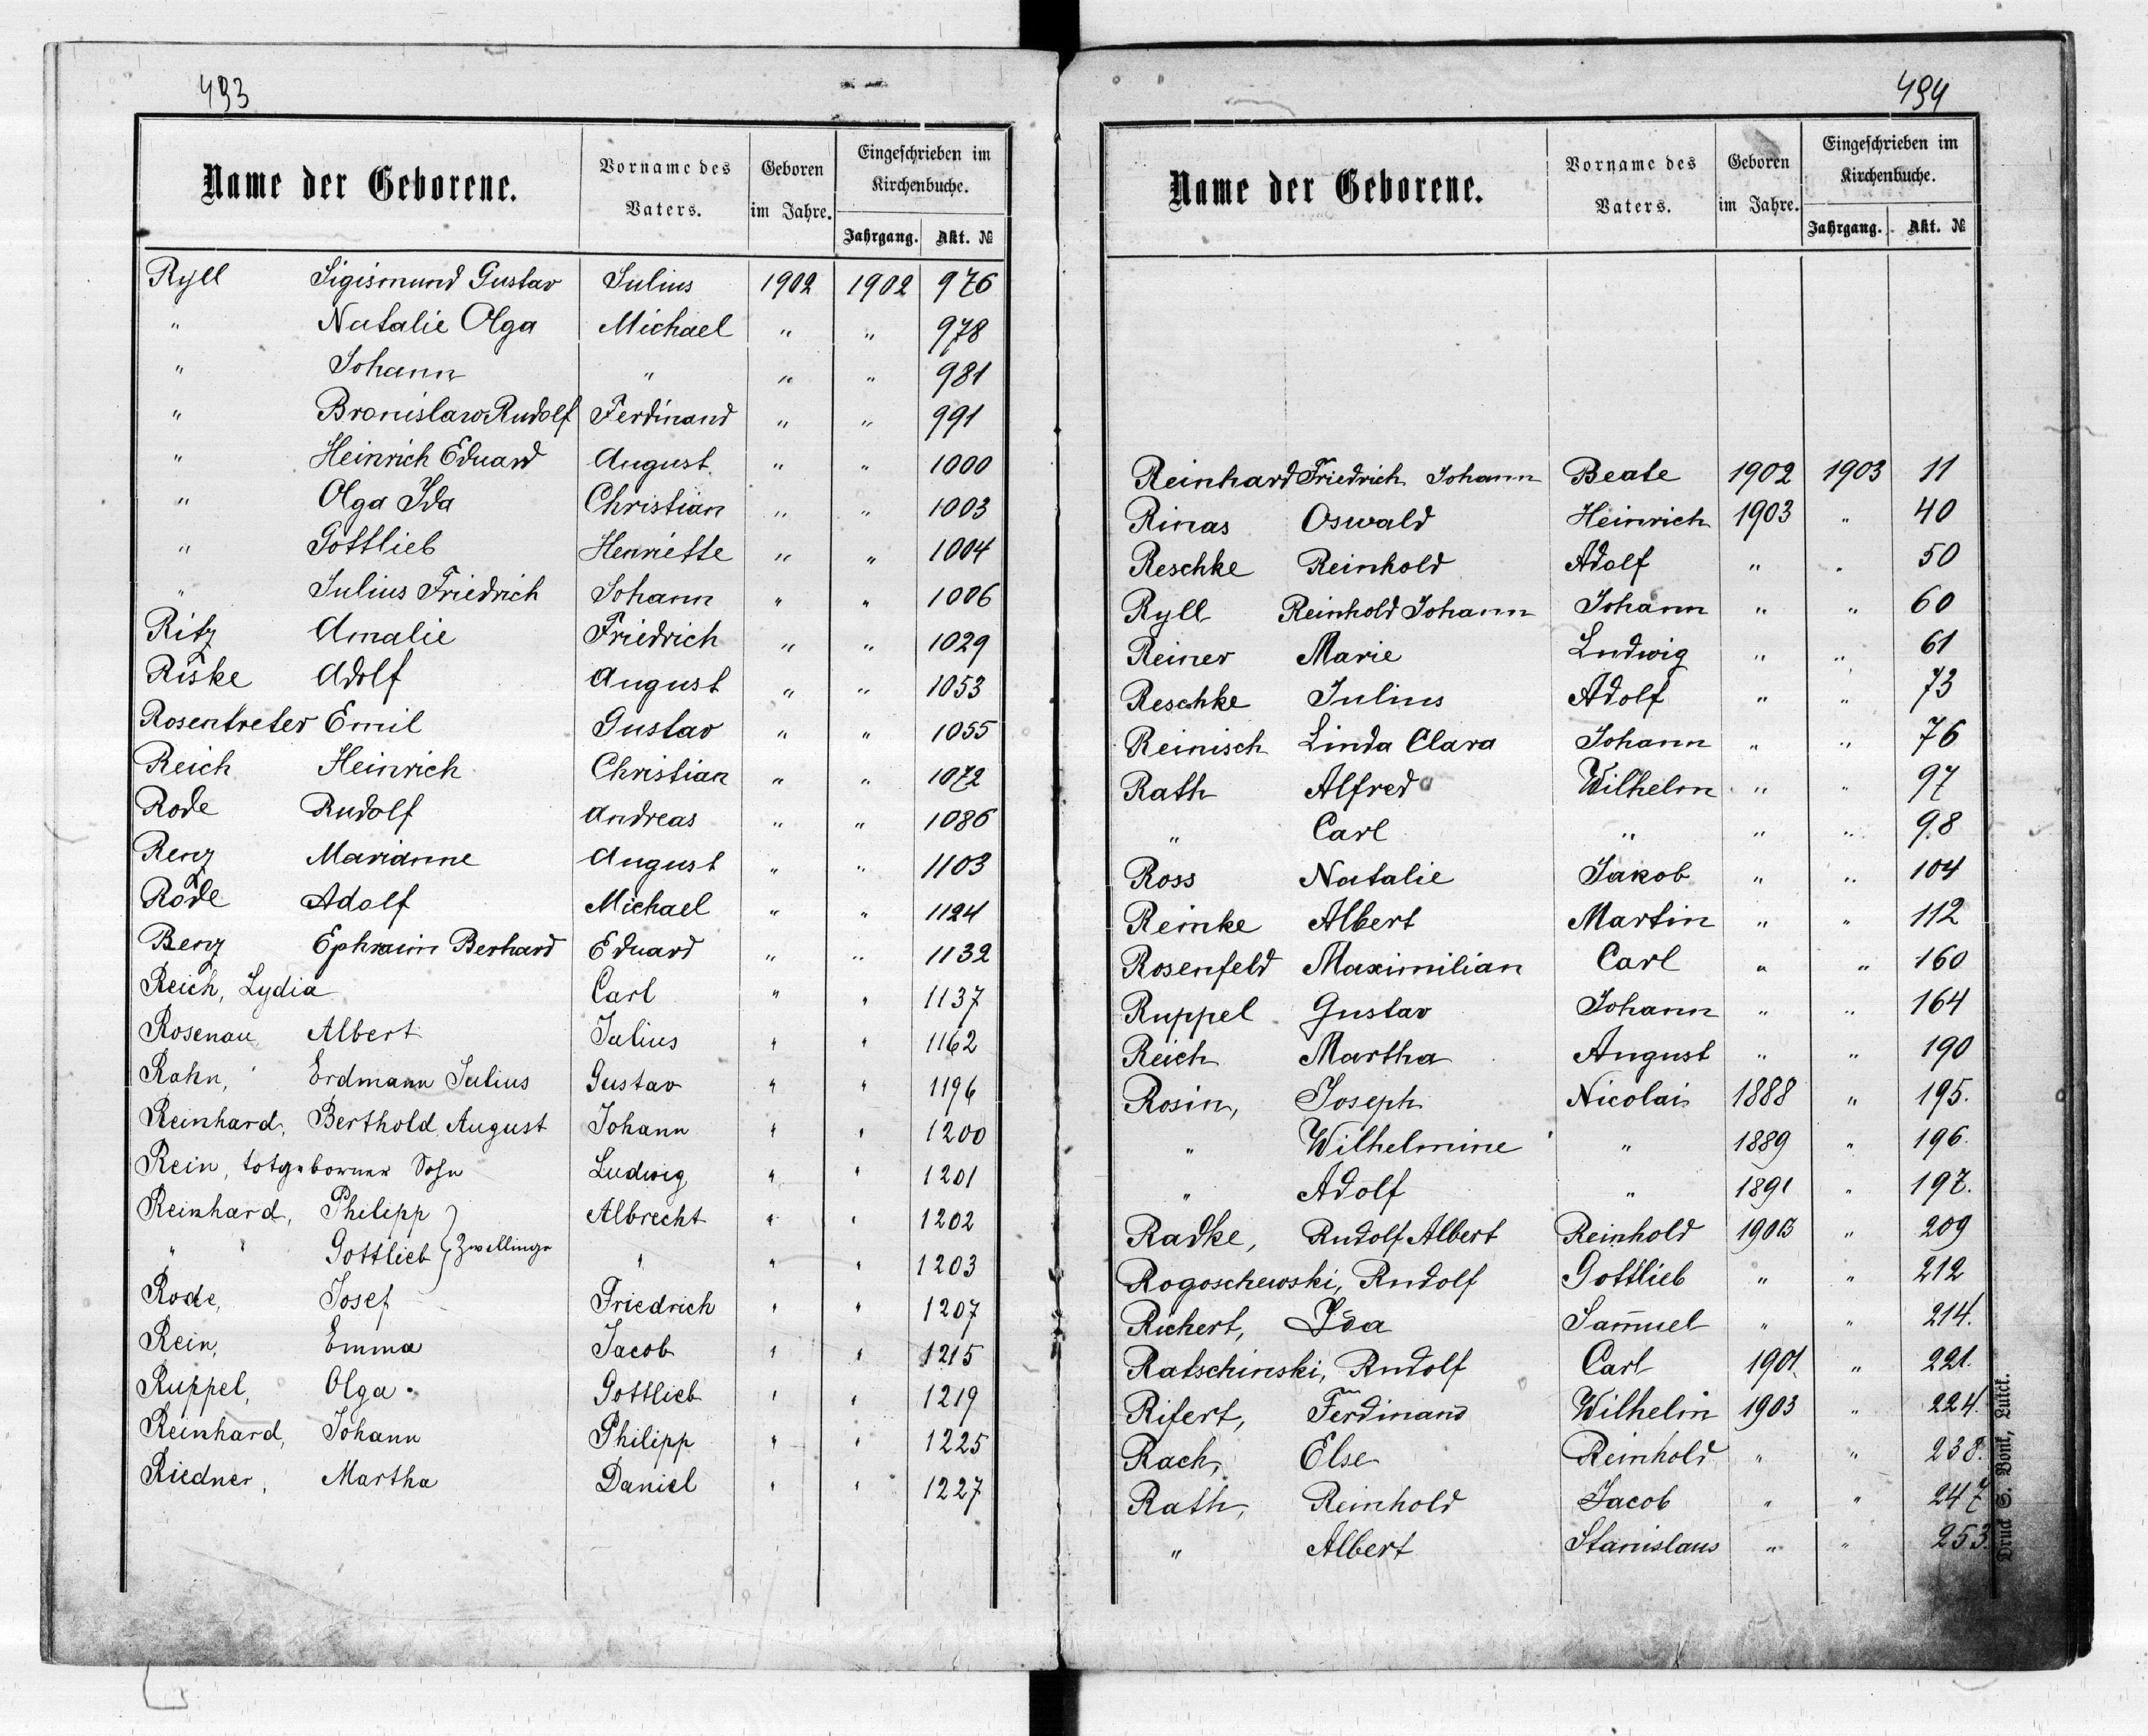 493
Name der Geborene. Vorname des Vaters. Geboren im Jahre. Eingeschrieben im Kirchenbuche. Jahrgang. Akt. №
Ryll Sigismund Gustav Julius 1902 1902 976
" Natalie Olga Michael " " 978
" Johann " " " 981
" Bronislaw Rudolf Ferdinand " " 991
" Heinrich Eduard August " " 1000
" Olga Ida Christian " " 1003
" Gottlieb Henriette " " 1004
" Julius Friedrich Johann " " 1006
Ritz Amalie Friedrich " " 1029
Riske Adolf August " " 1053
Rosentreter Emil Gustav " " 1055
Reich Heinrich Christian " " 1072
Rode Rudolf Andreas " " 1086
Renz Marianne August " " 1103
Rode Adolf Michael " " 1124
Benz Ephraim Berhard Eduard " " 1132
Reich, Lydia Carl " " 1137
Rosenau, Albert Julius " " 1162
Rahn, Erdmann Julius Gustav " " 1196
Reinhard, Berthold August Johann " " 1200
Rein, totgeborner Sohn Ludwig " " 1201
Reinhard, Philipp } Zwillinge Albrecht " " 1202
" Gottlieb } " " " 1203
Rode, Josef Friedrich " " 1207
Rein, Emma Jacob " " 1215
Ruppel, Olga Gottlieb " " 1219
Reinhard, Johann Philipp " " 1225
Riedner, Martha Daniel " " 1227
494
Name der Geborene. Vorname des Vaters. Geboren im Jahre. Eingeschrieben im Kirchenbuche. Jahrgang. Akt. №
Reinhard Friedrich Johann Beate 1902 1903 11
Rinas Oswald Heinrich 1903 " 40
Reschke Reinhold Adolf " " 50
Ryll Reinhold Johann Johann " " 60
Reiner Marie Ludwig " " 61
Reschke Julius Adolf " " 73
Reinisch Linda Clara Johann " " 76
Rath Alfred Wilhelm " " 97
" Carl " " " 98
Ross Natalie Jakob " " 104
Reinke Albert Martin " " 112
Rosenfeld Maximilian Carl " " 160
Ruppel Gustav Johann " " 164
Reich Martha August " " 190
Rosin, Joseph Nicolai 1888 " 195.
" Wilhelmine " 1889 " 196.
" Adolf " 1891 " 197.
Radke, Rudolf Albert Reinhold 1903 " 209
Rogoschewski, Rudolf Gottlieb " " 212
Richert, Ida Sam̅uel " " 214.
Ratschinski, Rudolf Carl 1901. " 221.
Rifert, Ferdinand Wilhelm 1903 " 224.
Rach, Else Reinhold " " 238.
Rath, Reinhold Jacob " " 247
" Albert Stanislaus " " 253.
Druck S. Bonk, Luck.